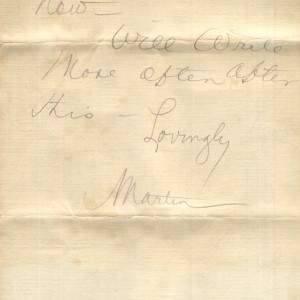 now —
Will Write
More often After
this —
Lovingly
Martin